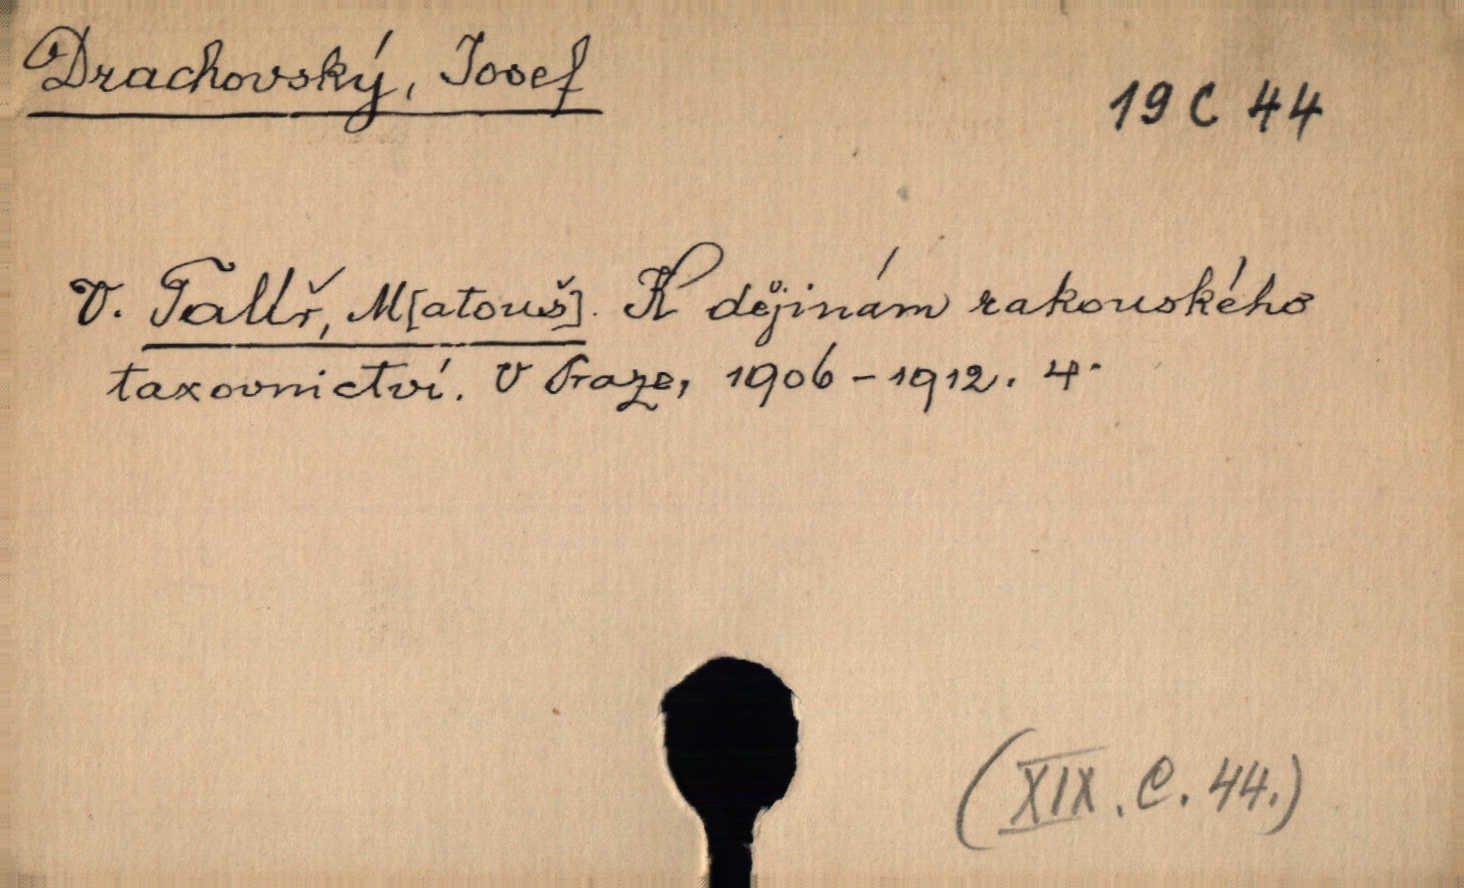 Drachovský, Josef
19 C 44
V. Talíř, M[atouš]. K dějinám rakouského
taxovnictví. V Praze, 1906-1912. 4·
(XIX. C. 44.)